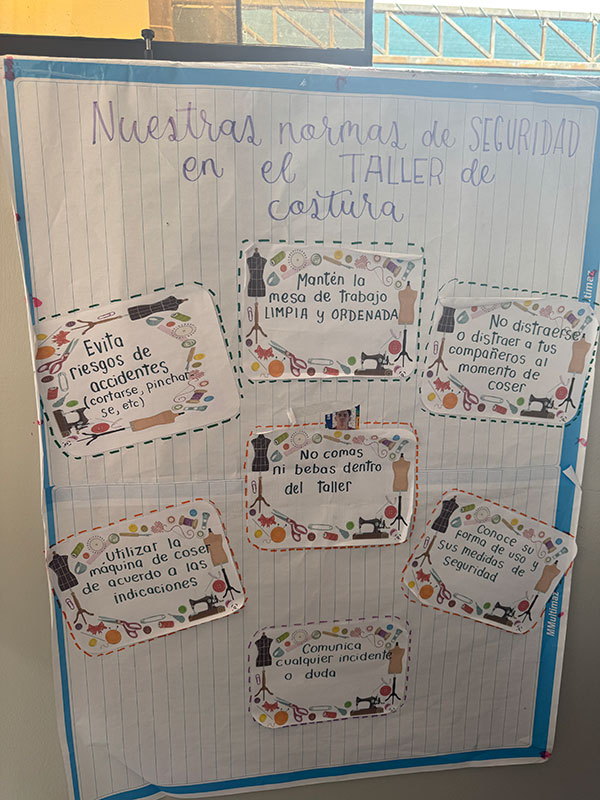 Nuestras normas de SEGURIDAD
en el TALLER de
costura
Mantén la
mesa de trabajo
LIMPIA y ORDENADA
Evita
riesgos de
accidentes
(cortarse, pinchar-
se, etc)
No distraerse
o distraer a tus
compañeros al
momento de
coser
No comas
ni bebas dentro
del taller
Utilizar la
máquina de coser
de acuerdo a las
indicaciones
Conoce su
forma de uso y
sus medidas de
seguridad
Comunica
cualquier incidente
o duda
MMultimaz